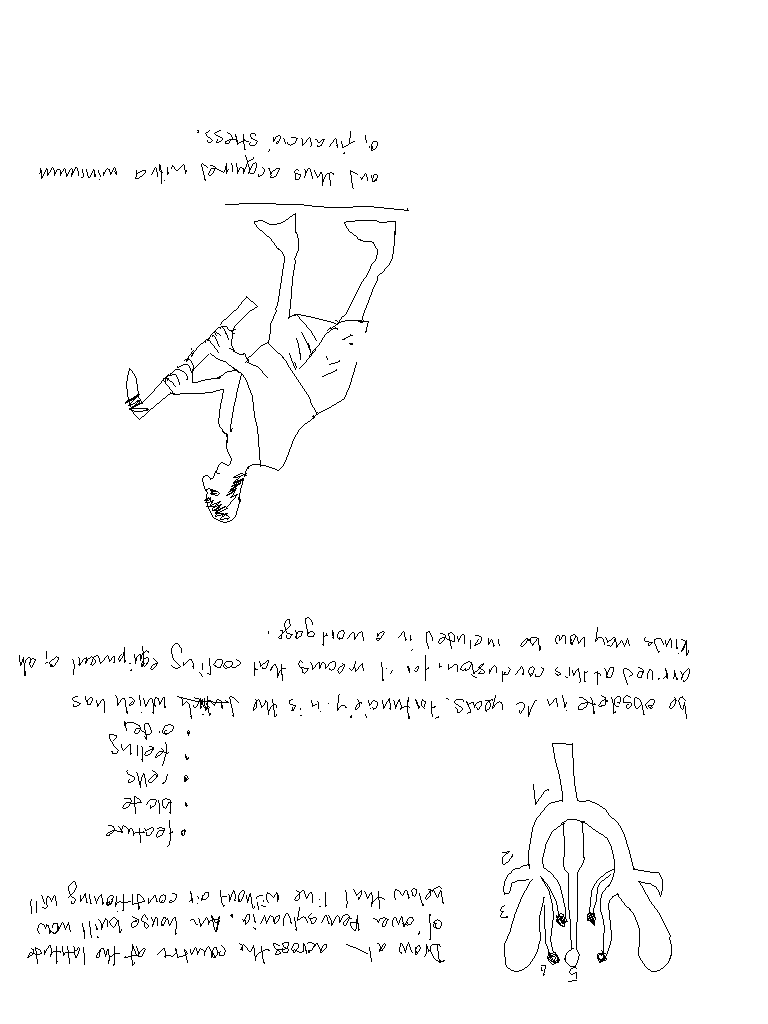 Draw a l— across the country at the latitude
of over Pennsylvania. Any house built now
below that line without air conditioning will
5
4
3
2
1
• feature
• blade
• rells
• feeling
• order
be obsolete in 10 years. Fortunately it is the which has
arrived at this conclusion, for it means that cooling equipment of all
kinds may now be included in a mortgage.
and thus acquired with a minimum
of financial stress.